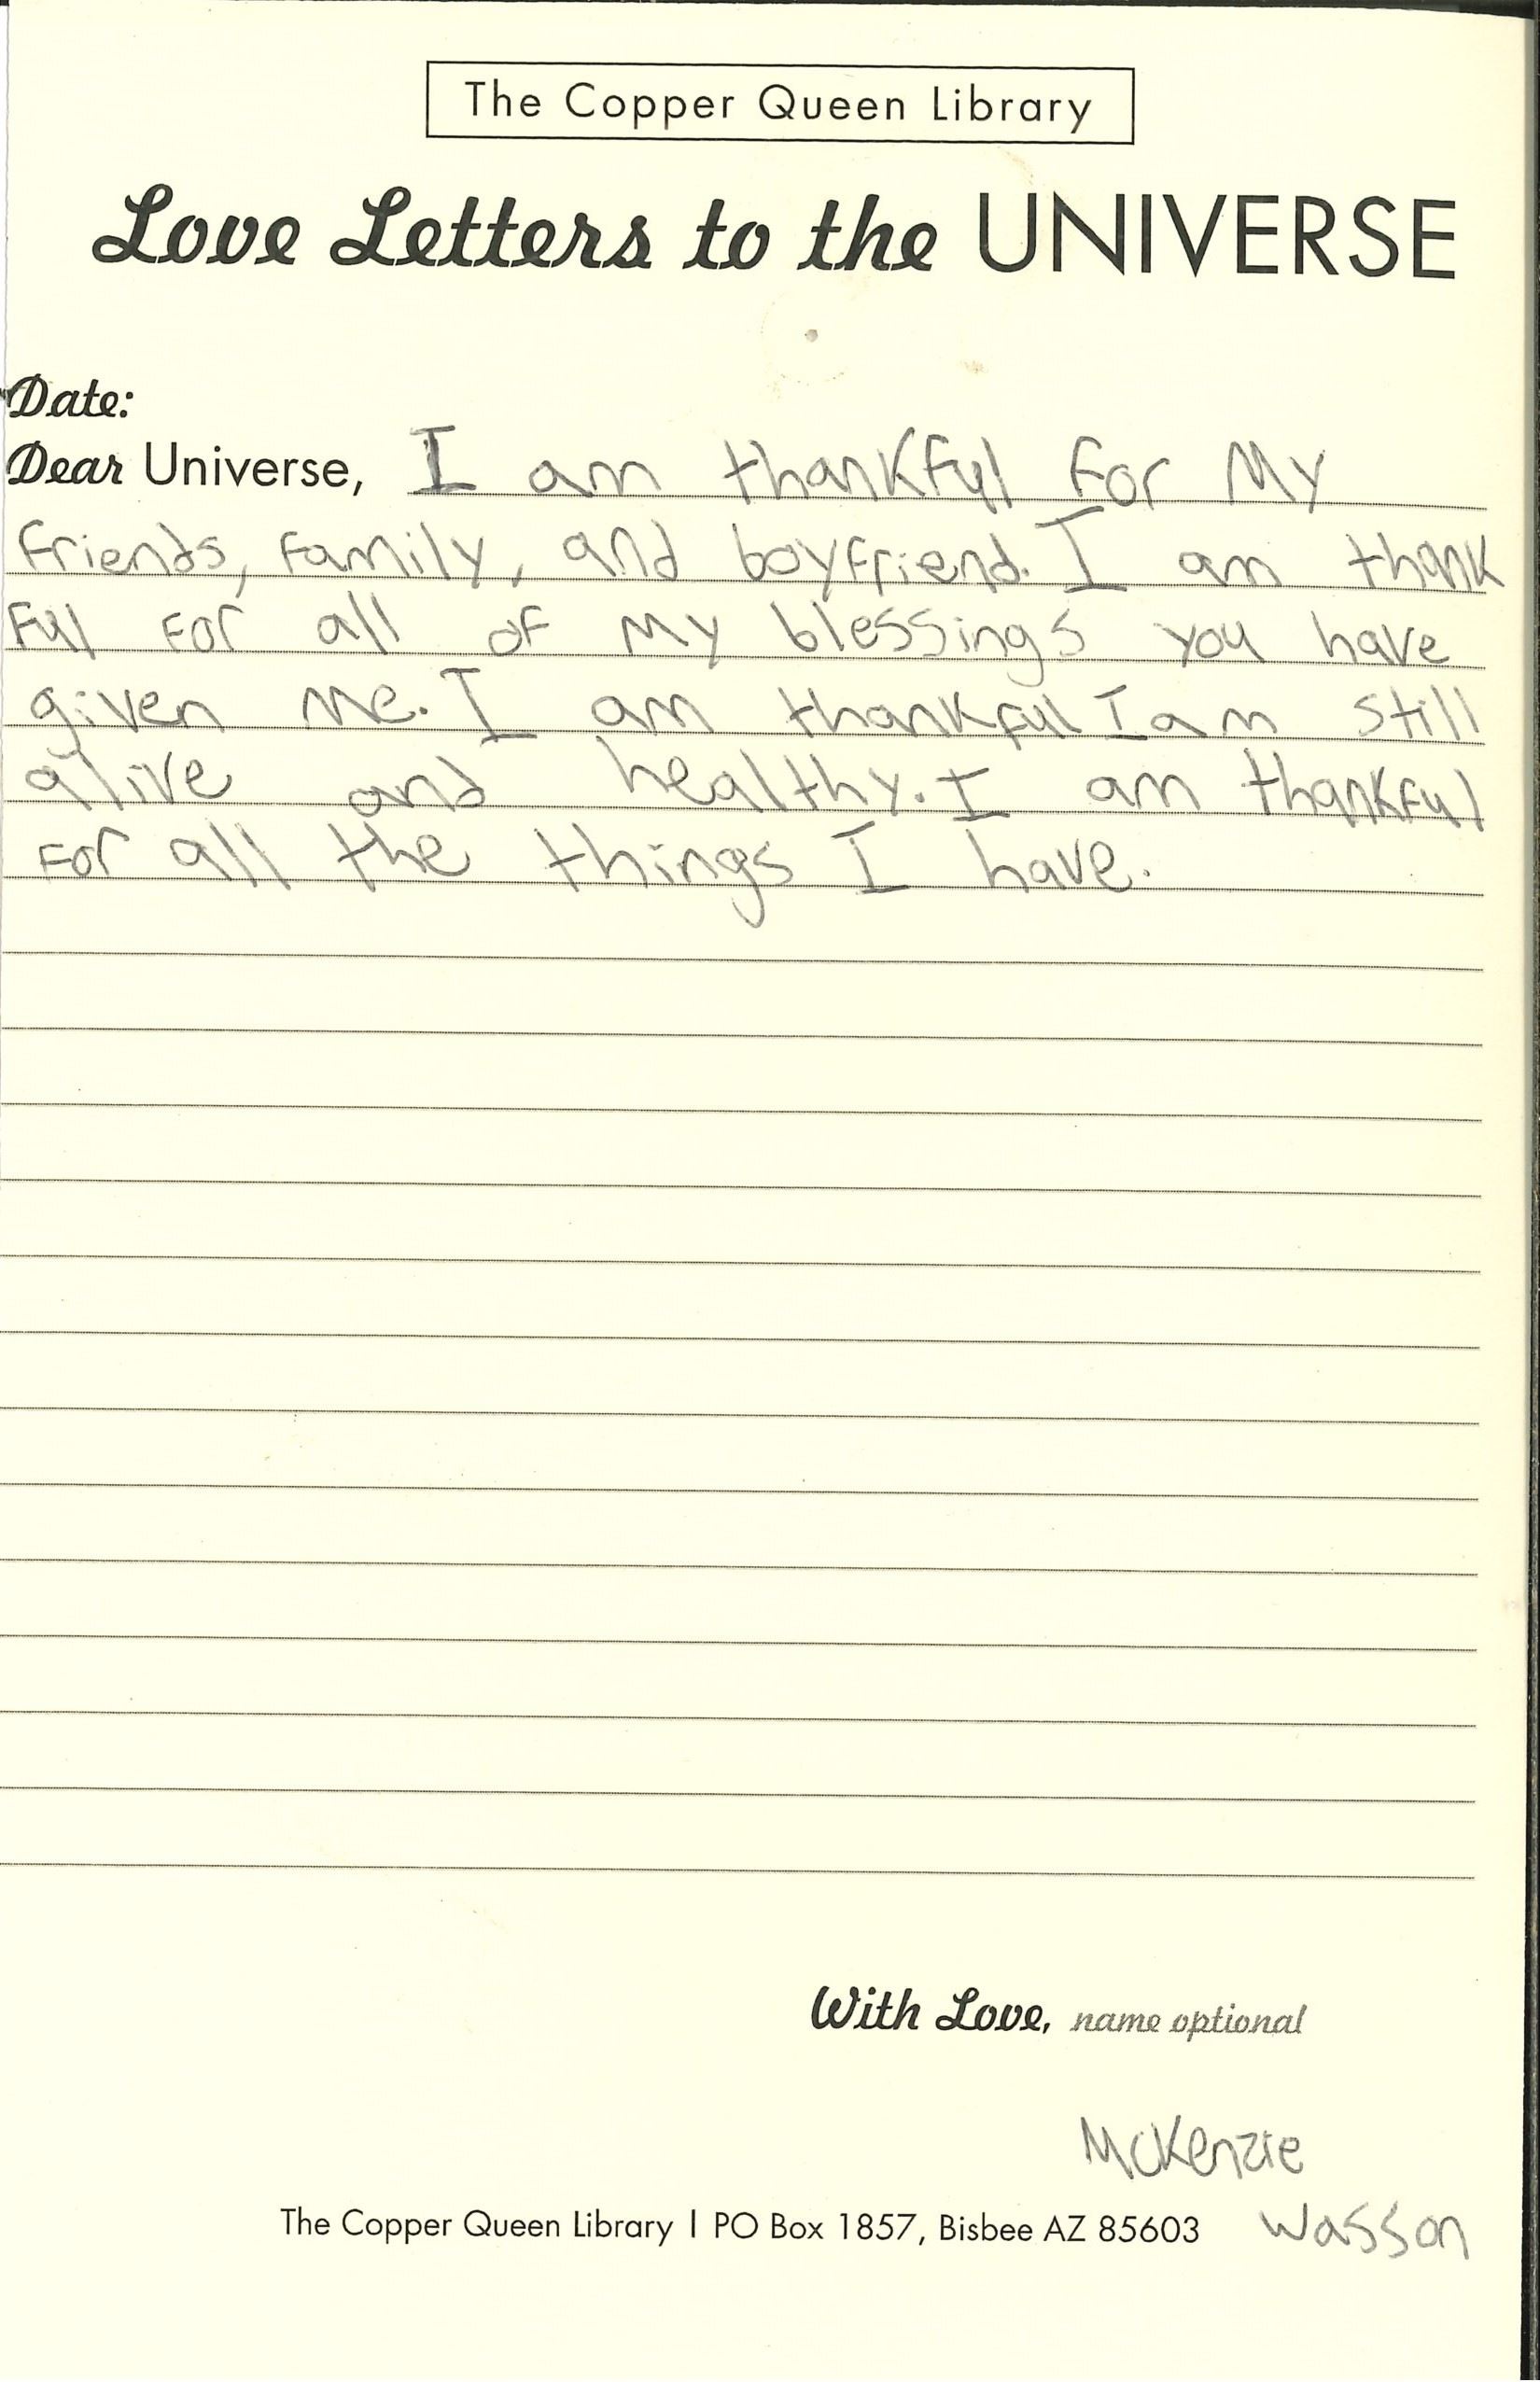 The Copper Queen Library
Love Letters to the UNIVERSE
Date:
Dear Universe, I am thankful for My
friends, family, and boyfriend. I am thank
full for all of My blessings you have
given Me. I am thankful I am still
alive and healthy. I am thankful
for all the things I have.
With Love, name optional
McKenzie
The Copper Queen Library | PO Box 1857, Bisbee AZ 85603 Wasson